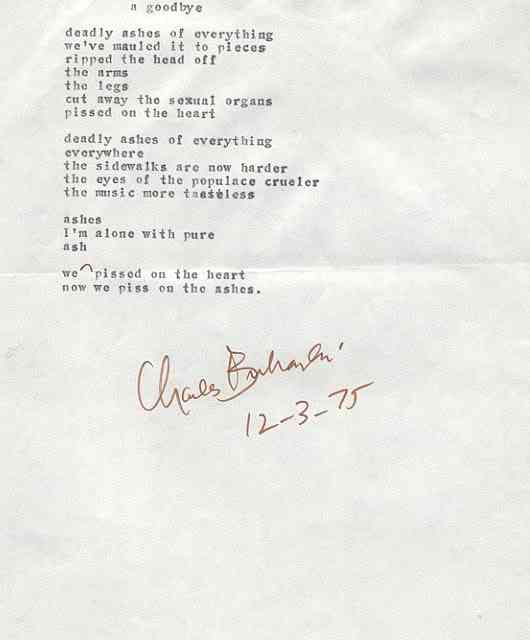 a goodbye
deadly ashes of everything
we've mauled it to pieces
ripped the head off
the arms
the legs
cut away the sexual organs
pissed on the heart
deadly ashes of everything
everywhere
the sidewalks are now harder
the eyes of the populace crueler
the music more tasteless
ashes
I'm alone with pure
ash
we pissed on the heart
now we piss on the ashes.
Charles Bukowski
12-3-75